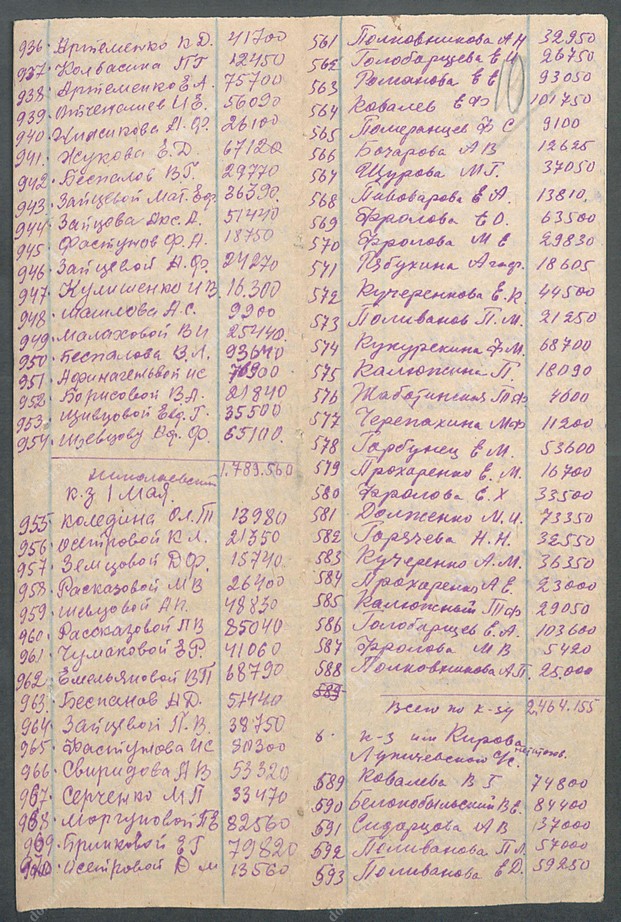 936. Артеменко В.Д. 41700
937. Колвасина П Г 12450
938. Артеменко Е.А. 75700
939. Отченашев И.Е. 56090
940. А.Ф. 26100
941. Жукова Е.Д. 67120
942. Беспалов В.Г. 29770
943. Зайцевой Мат. Еф. 36390.
944. Зайцева Акс. А. 51440
945. Фастунов Ф.А. 18750
946. Зайцевой А.Ф. 24270
947. Кулишенко И В. 16.300
948. Маилова А.С. 9900
949. Малаховой В И 25440.
950. Беспалова В.Л. 93640
951. ИС
952. Борисовой В.А. 21840
953. Шивцовой Евд. Г. 35500
954. Шевцову Ф. 65100.
1.789.560
Николаевский
к.з 1 мая.
955. Коледина Ол. Т 13980
956. Осетровой К.А. 21350
957. Земцовой Д.Ф. 15740.
958. Расказовой М В 26400
959. Шевцовой А П. 48830
960. Рассказовой П В 85040
961. Чумаковой Е.Р. 41060
962. Емельяновой В П 68790
963. Беспалов А Д. 51440
964. Зайцевой П. В. 38750
965. Фастунова И С 80300
966. Свиридова А В 53320
967. Серченко М П 33470
968. Моргуновой П В 82560
969. Бринковой Е Г 79820
970. Осетровой Д М 13560
10
561 Полковникова А Н 32950
562 Голобарщева Е И 26750
563 Романова Е Е 93050
564 Ковалев Е Ф 101750
565 Померанцев Ф С 9100
566 Бочарова А В 12625
567 Щурова М Г. 37050
568 Пивоварова Е А. 13810.
569 Фролова Е О. 63500
570 Фролова М Е 29830
571 Рябухина Агаф. 18605
572 Кучеренкова Е. К 44500
573 Поливанов П. М. 21250
574 Кукурекина Ф М. 68700
575 Калюжина П 18090
576 Жаботинская Т Ф 4600
577 Черепахина М Ф 11200
578 Горбунец Е М. 53600
579 Прохаренко Е. М. 16700
580 Фролова Е. Х 33500
581 Долженко М. И. 73350
582 Горячева Н. Н. 32550
583 Кучеренко А. М. 36350
584 Прохаренко А Е. 23000
585 Калюжный Т Ф 29050
586 Голобарщев Е. А. 103600
587 Фролова М В 5420
588 Полковникова А.П. 25,000
589
Всего по к-зу 2,464.155
6. к-з им Кирова
589 Ковалева В I 74800
590 Белокобыльский В Е. 84400
591 Сидарцова А В 137000
592 Поливанова П Л. 57000
593 Поливанова Е Д. 59250